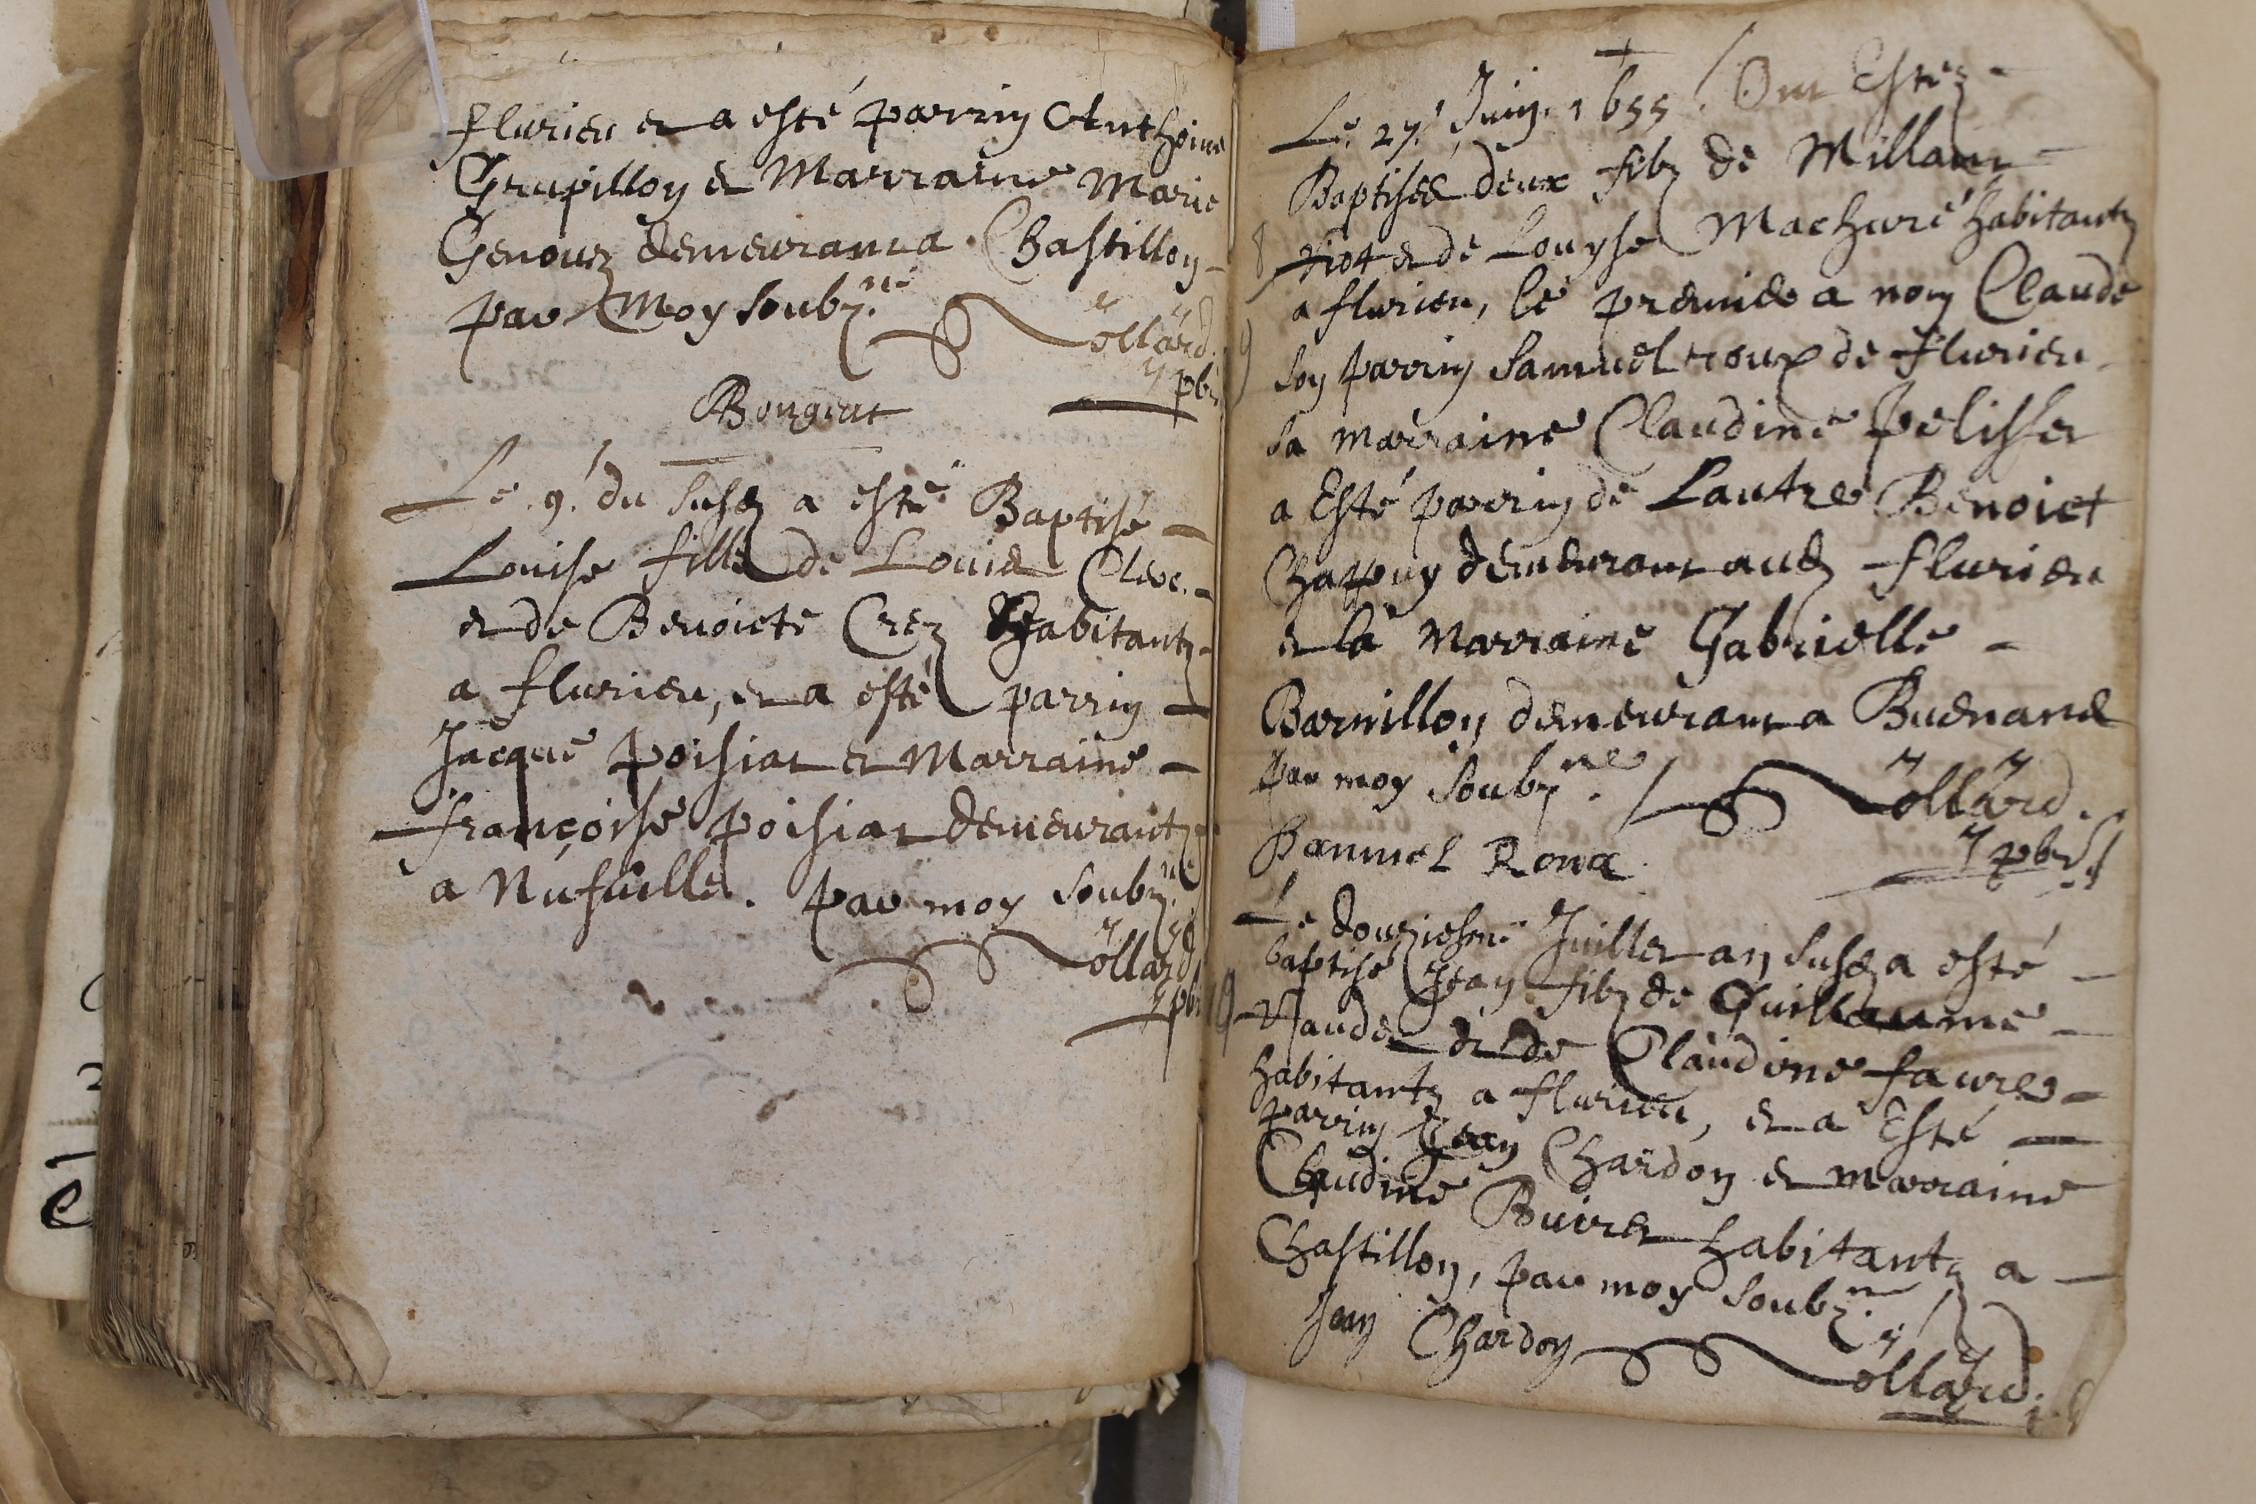 flurieu et a esté parrin Anthoine
Grupilloy et Marraine Marie
Genouz demeurant a Chastilloy
par Moy soubz.né
ollard
pbr
Bongeat
Le .9. du susd a esté Baptisé
Louise fille de Louis Cleve.
et de Benoicte Crez habitantz
a flurieu, et a esté parrin
Jacque poisiat et Marraine
françoise poisiat demeurantz
a Nufville. par moy soubz.né
ollard
pbr
Le 27. Juin. 1655. Ont Estez
Baptisés deux filz de Millant
8 et de Louyse Machuré habitantz
a flurieu, le premier a nom Claude
9 son parrin Samuel roux de flurieu
sa marraine Claudine pelisset
a Esté parrin de Lautre Benoict
Chappuy demeurant aud flurieu
et la Marraine Gabrielle
Barnilloy demeurant a Buenand
par moy soubz.né ollard.
Samuel Roux pbr
Le douziesme Juillet an susd a esté
baptisé Jean filz de Guillaume
10 Naudet et de Claudine faures
habitantz a flurieu, et a Esté
parrin Jean Chardon et marraine
Claudine Buiret habitantz a
Chastillon, par moy soubz.né
Jean Chardon ollard.